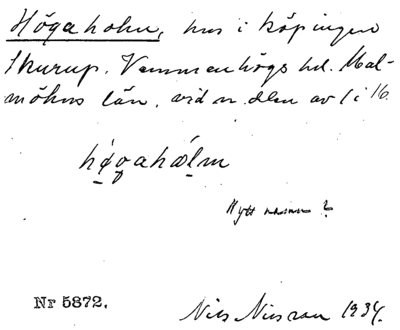 Högaholm, hus i köpingen
Skurup. Vemmenhögs hd. Mal-
möhus län, vid n. delen av l i 16.
högahalm
Nytt namn?
Nr 5872.
Nils Nilsson 1934.